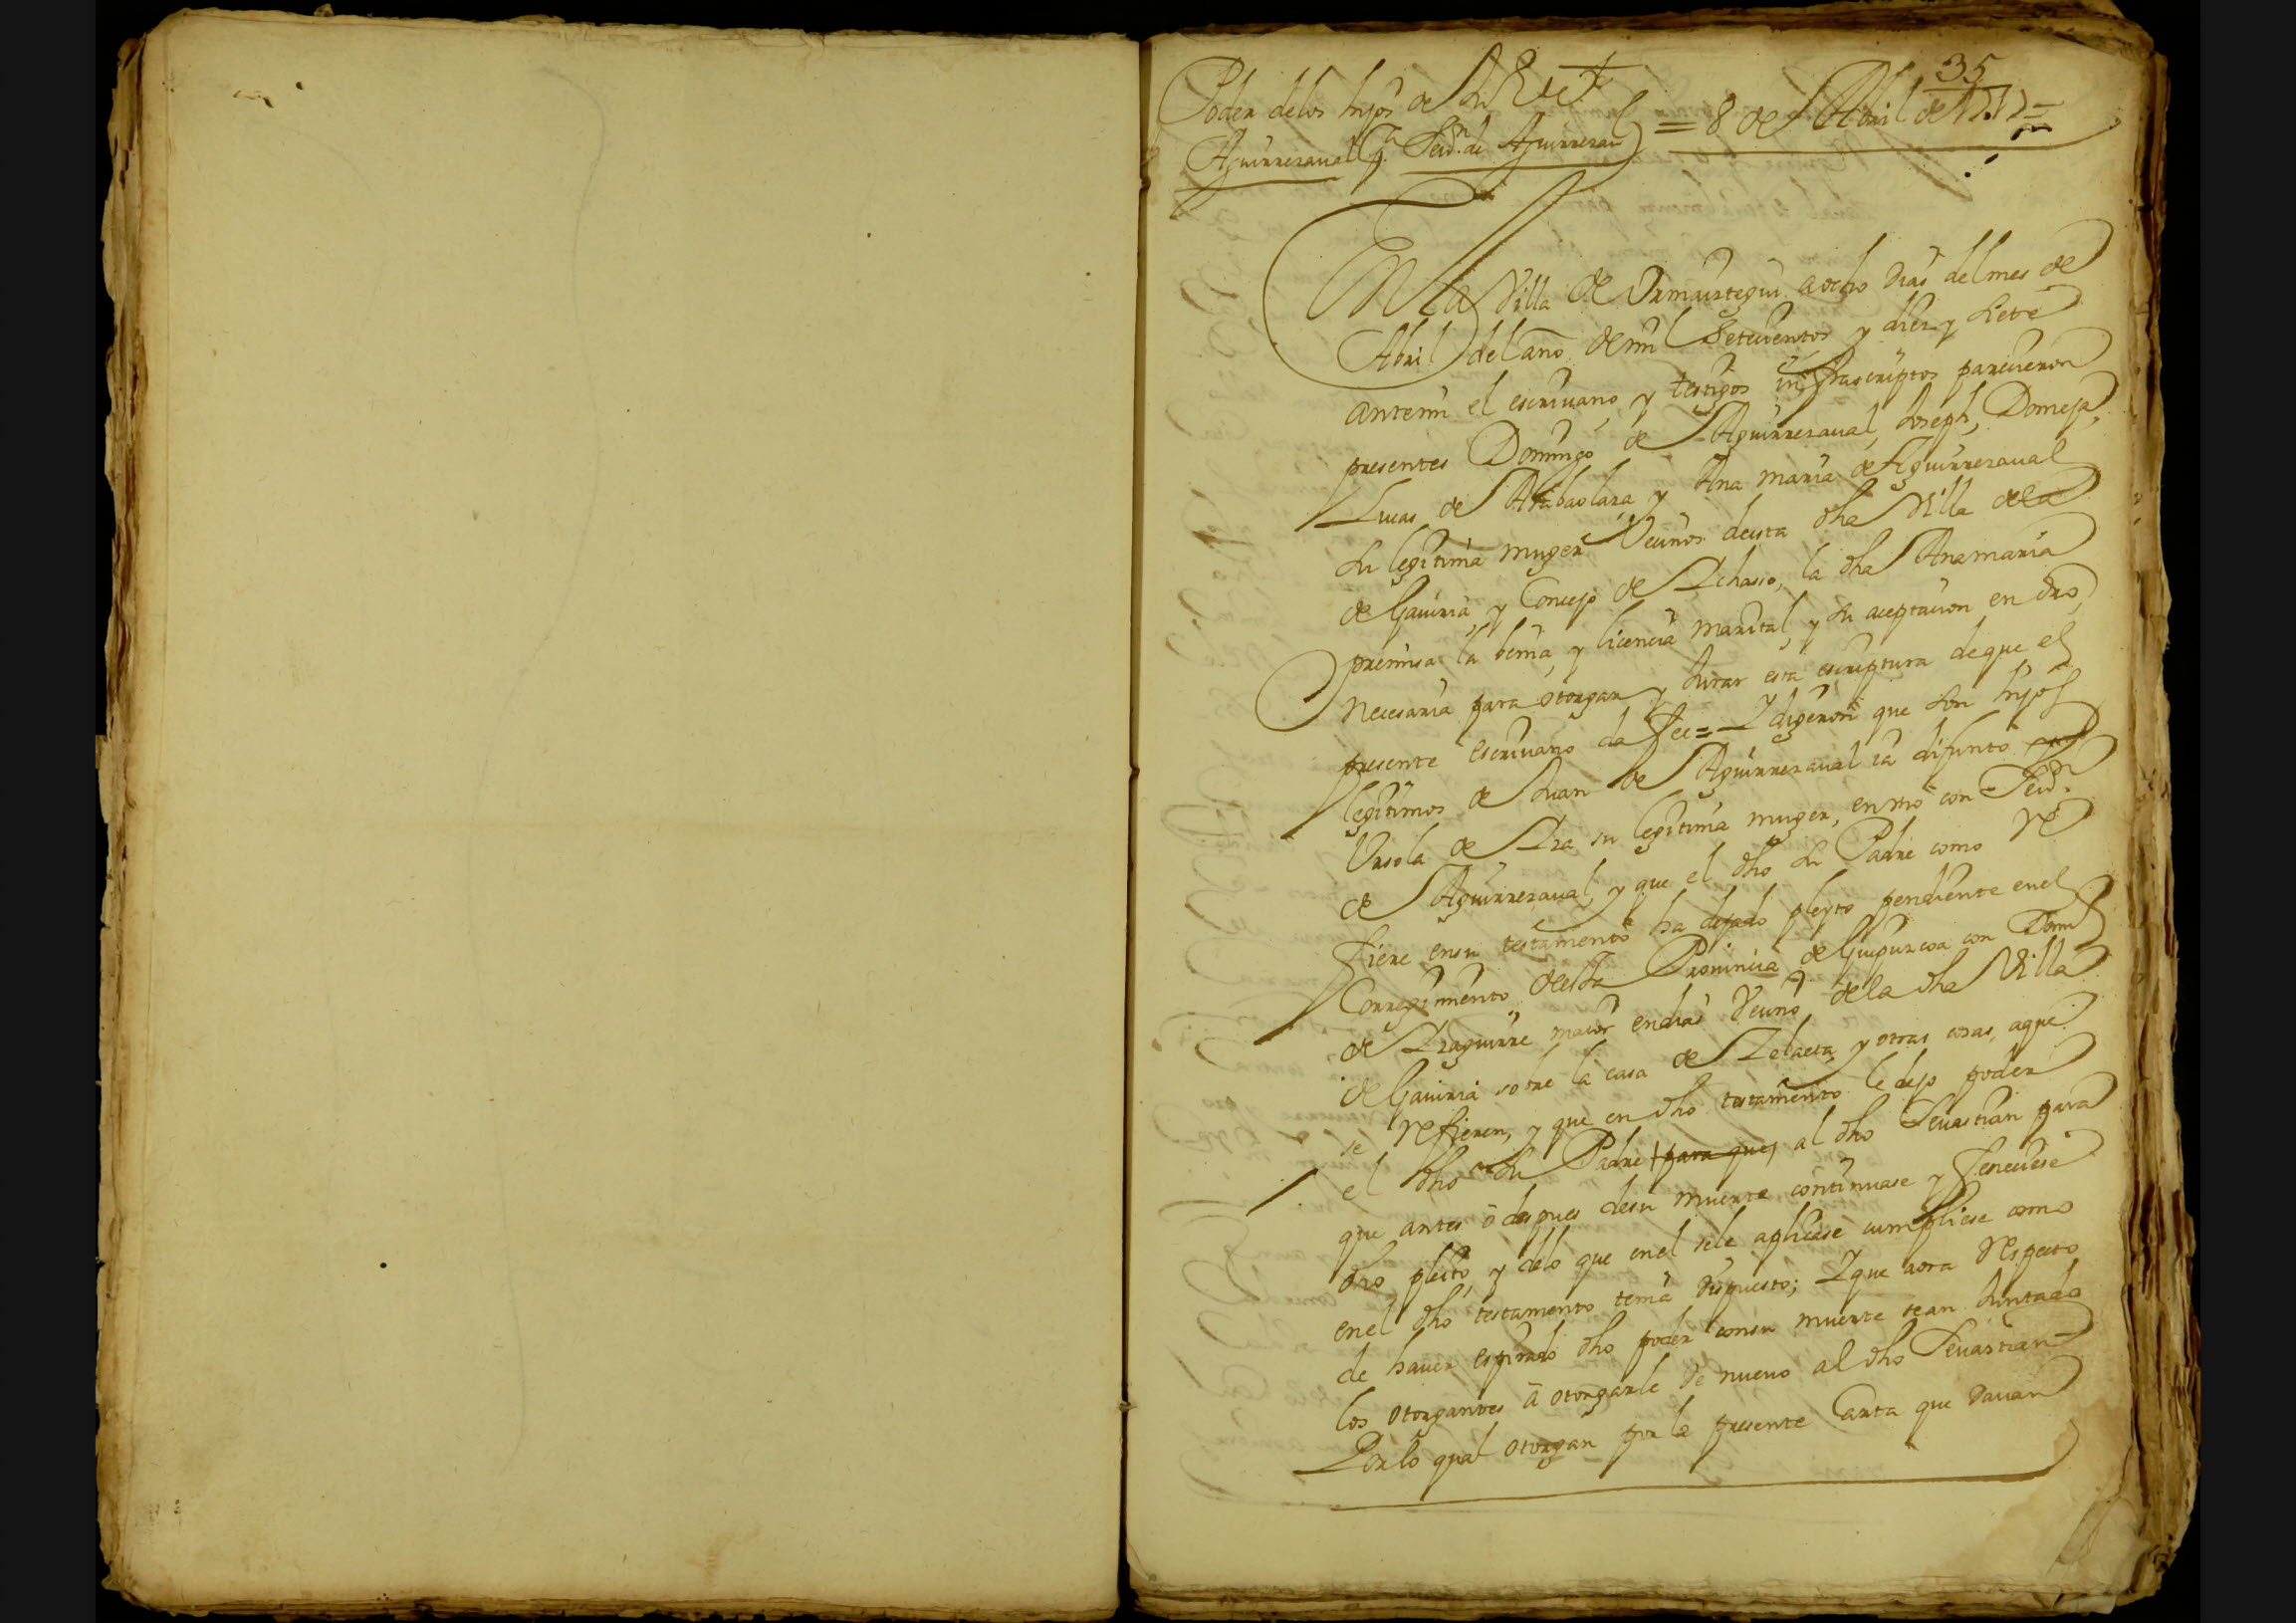 35
Poder delos hijos de Juº de
Aguirrezaual pª Seuⁿ. de Aguirrezaual = 8 de Abril de 1717 =
En la Villa de Ormaiztegui a ocho dias del mes de
Abril del año de mil Setecientos y diez y siete
antemi el escriuano y testigos infrascriptos parecieron
presentes Domingo de Aguirrezaual, Joseph, Domeja,
Lucas de Albaolaza y Ana maria de Aguirrezaual
su legitima muger Vecinos desta dha Villa dela
de Gauiria, y Concejo de Ichaso, la dha Ana maria
premisa la venia, y licencia marital, y su aceptacion en dro,
necesaria para otorgar y Jurar esta escriptura de que el
presente escriuano da fee = Y digeron que son hijos
legitimos de Juan de Aguirrezaual ia difunto
Ursola de su legitima muger, en uno con Seuⁿ.
de Aguirrezaual, y que el dho su Padre como re
fiere en su testamento ha dejado pleyto pendiente enel
Corregimiento desta Prouincia de Guipuzcoa con Domº
de Izaguirre maior en dias Vecino dela dha Villa
de Gauiria sobre la casa de y otras cosas, a que
se refieren, y que en dho testamento le dejo poder
el dho su Padre para que al dho Seuastian para
que antes ò despues de su muerte continuase y feneciese
dho pleito, y delo que enel sele aplicase cumpliese como
enel dho testamento tenia dispuesto; Y que aora respecto
de hauer espirado dho poder con su muerte se an Juntado
los otorgantes à otorgarle de nueuo al dho Seuastian =
Por lo qual otorgan por la presente Carta que dauan